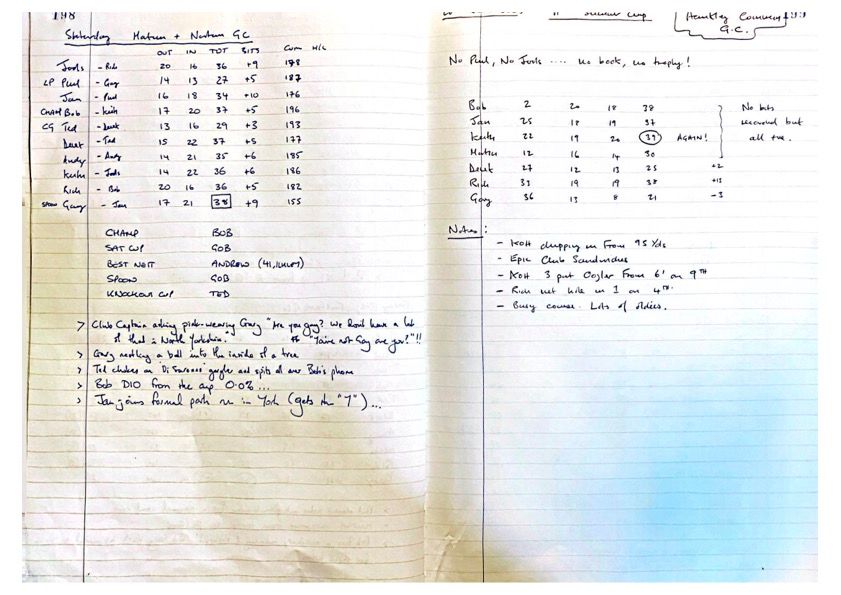 198
Saturday Matum + Newton GC
OUT IN TOT BITS Cum H/C
Jools - Rich 20 16 36 +9 178
LP Paul - Gary 14 13 27 +5 187
Jan - Paul 16 18 34 +10 176
CHAMP Bob - Keith 17 20 37 +5 196
CG Ted - Derek 13 16 29 +3 193
Derek - Ted 15 22 37 +5 177
Andy - Andy 14 21 35 +6 185
Keith - Jools 14 22 36 +6 186
Rich - Bob 20 16 36 +5 182
SPOON Gary - Jan 17 21 38 +9 155
CHAMP BOB
SAT CUP GOB
BEST NETT ANDREW (41,
SPOON GOB
KNOCKOUT CUP TED
> Club Captain asking pink-wearing Gary "Are you gay? We don't have a lot
of that in North Yorkshire." "You're not Gay are you?"!!
> Gary nestling a ball into the inside of a tree
> Ted chokes on "Di Saronno" gargler and spits all over Bob's phone
> Bob DIO from the cup 0.0%...
> Jan joins formal park run in York (gets the "T")...
Hankley Common 199
G.C.
No Paul, No Jools .... no book, no trophy!
Bob 2 20 18 38
Jan 25 18 19 37
Keith 22 19 20 39 AGAIN!
Martin 12 16 14 30
Derek 27 12 13 25 +2
Rich 33 19 19 38 +13
Gary 36 13 8 21 -3
No bits
recorded but
all +ve.
Notes:
- KOH chipping in from 95 Yds
- Epic Club Sandwiches
- KOH 3 put from 6' on 9TH
- Rich net hole in 1 on 4TH.
- Busy course. Lots of oldies.